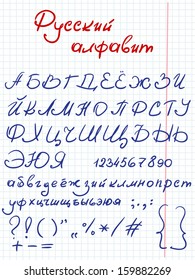 Русский
алфавит
АБВГДЕЁЖЗИ
ЙКЛМНОПРСТУ
ФХЦЧШЩЪЫЬ
ЭЮЯ 1234567890
абвгдеёжзийклмнопрст
уфхцчшщъыьэюя ;.,:
?!()"„%*/#{}
+-=
www.shutterstock.com · 159882269